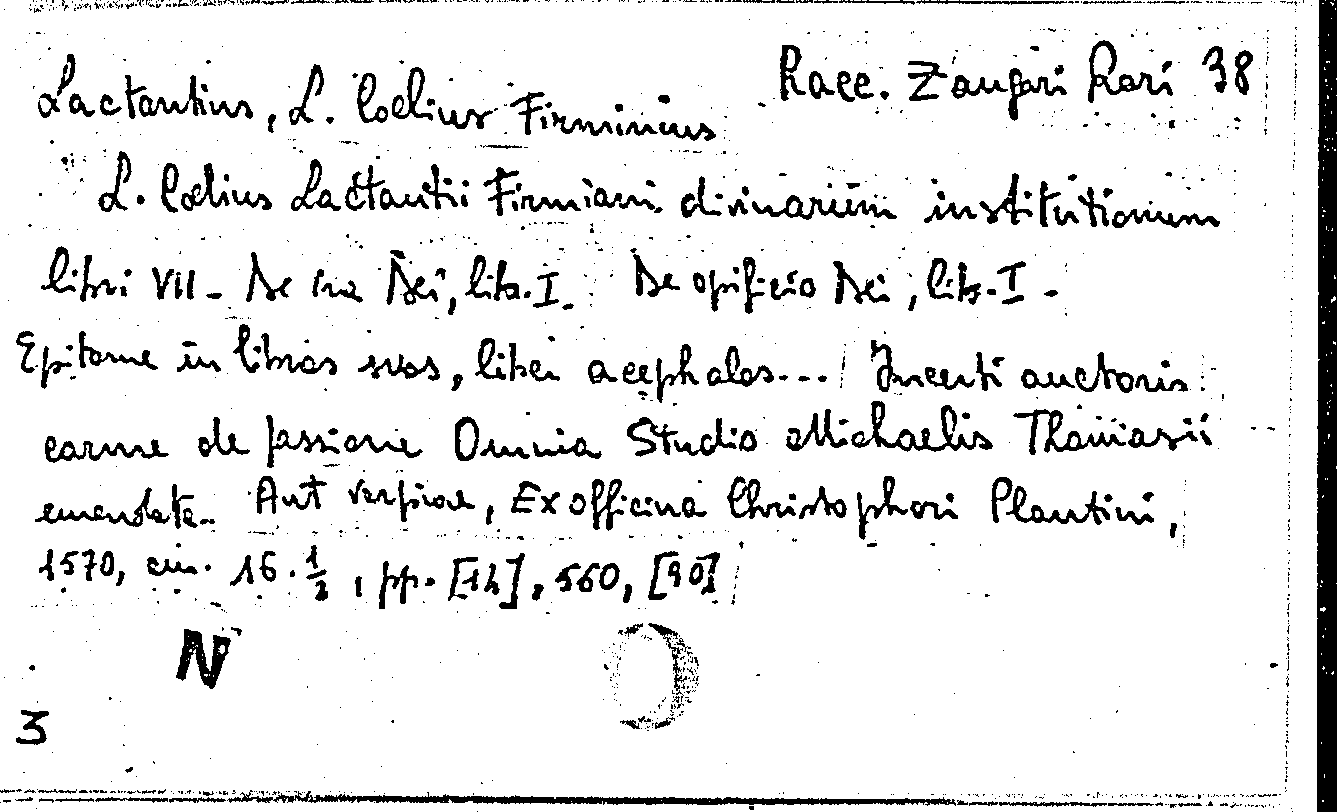 Racc. Zangari Rari 38
Lactantius, L. Coelius Firminius
L. Coelius Lactantii Firmiani divinarum institutionum
libri VII - De ira Dei, lib. I. De opificio Dei, lib. I -
Epitome in libros suos, liber acephalos... Incerti auctoris
carme de passione Omnia Studio Michaelis Thomasii
emendata. Antverpiae, Ex officina Christophori Plantini,
1570, cm. 16.½, pp. [14], 560, [90]
N
3